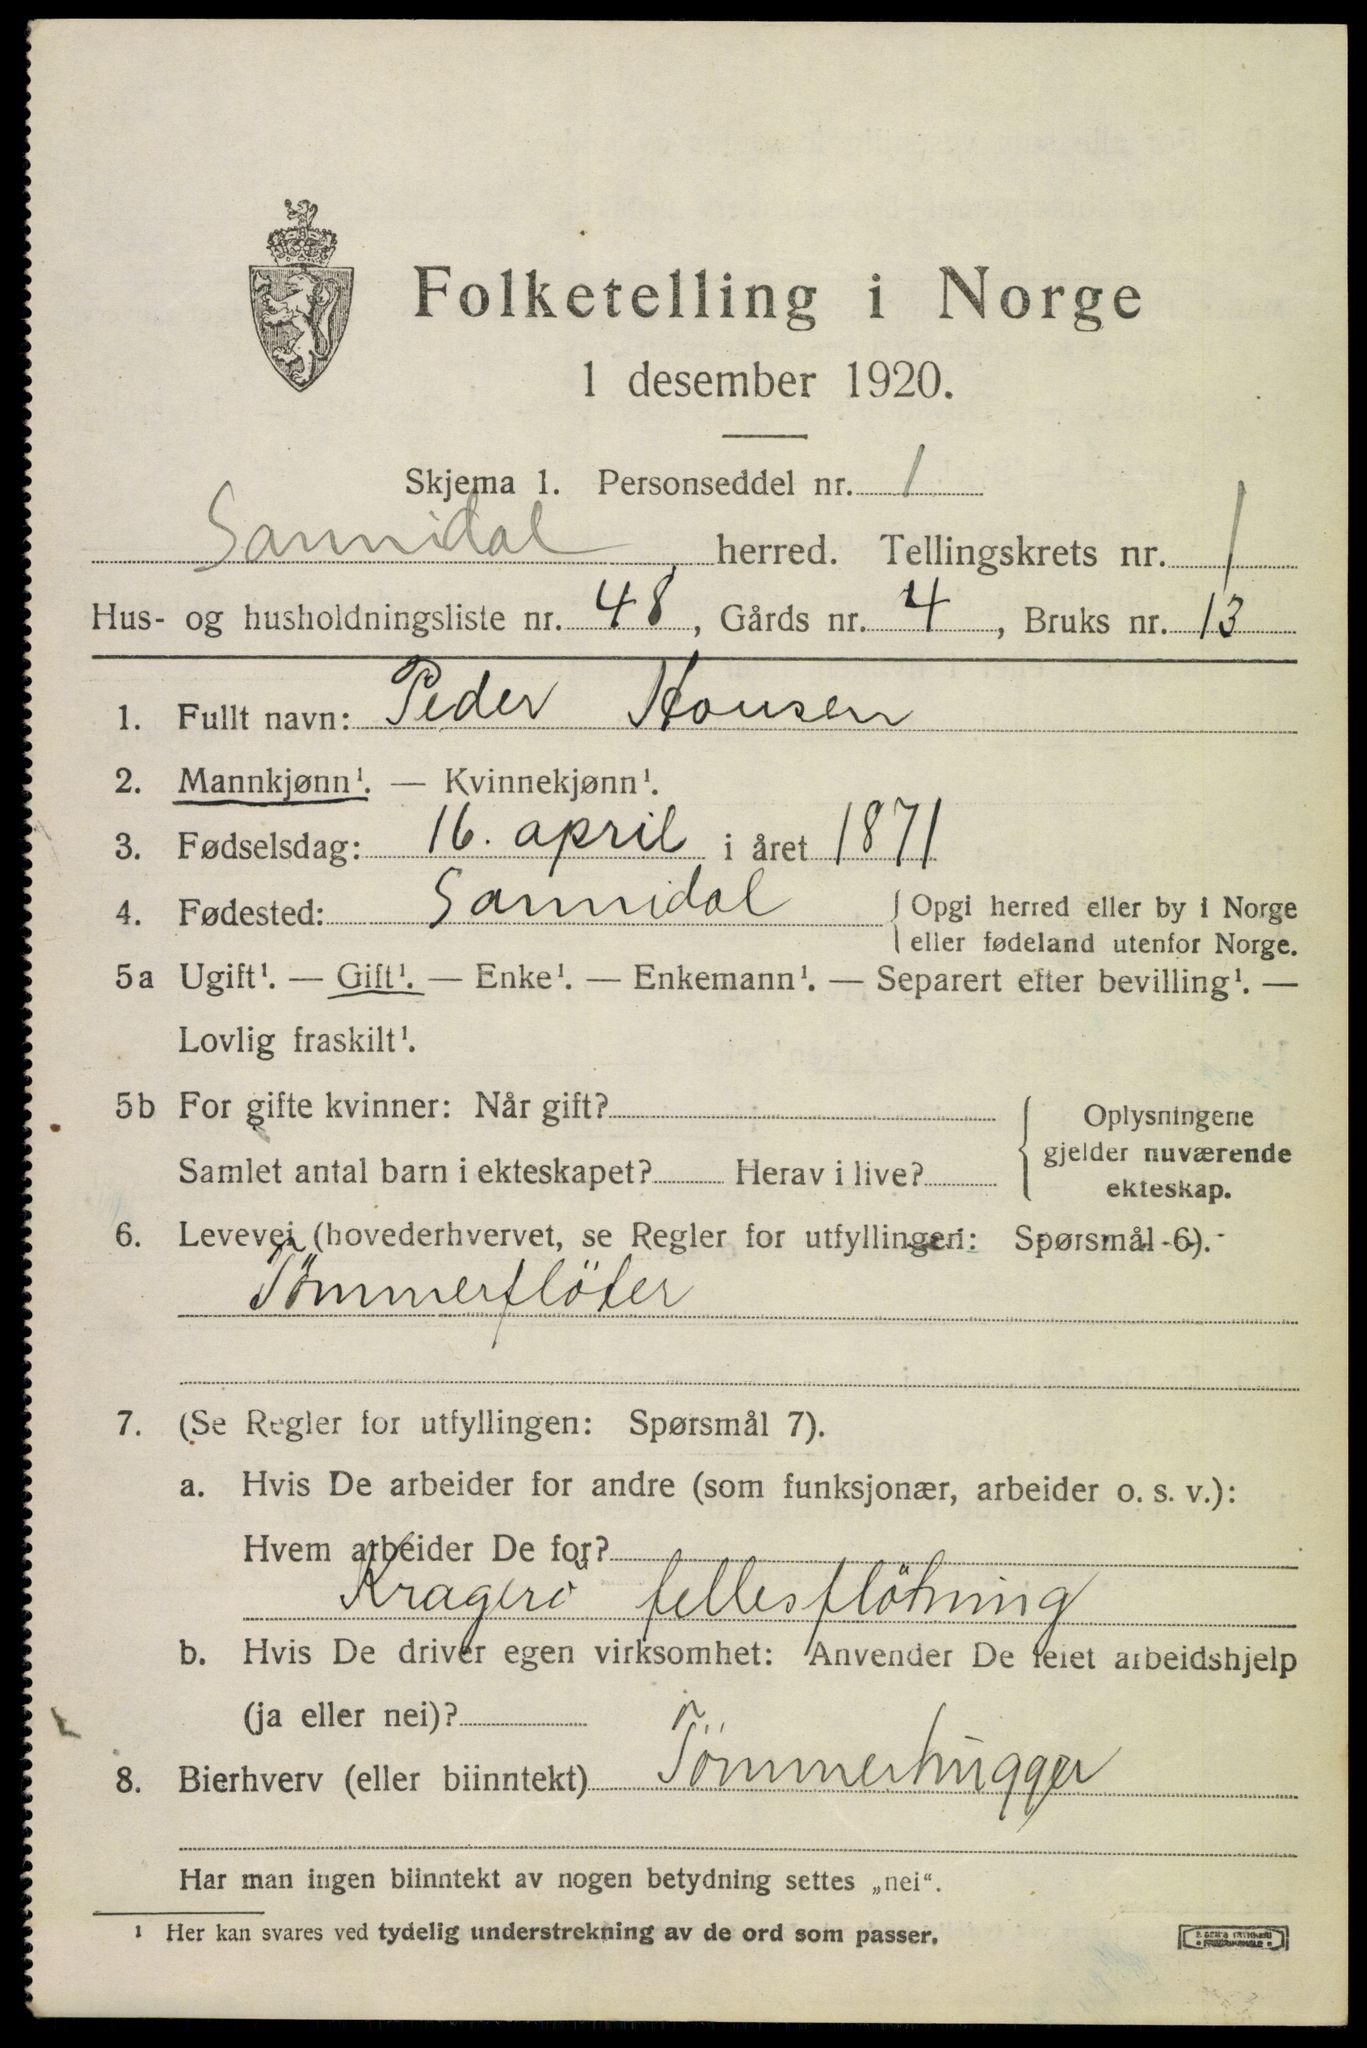 Folketelling i Norge
1 desember 1920.
Skjema 1. Personseddel nr. 1
Sannidal herred. Tellingskrets nr. 1
Hus- og husholdningsliste nr. 48, Gårds nr. 4, Bruks nr. 13
1. Fullt navn: Peder Hansen
2. Mannkjønn¹. — Kvinnekjønn¹.
3. Fødselsdag: 16. april i året 1871
4. Fødested: Sannidal { Opgi herred eller by i Norge
eller fødeland utenfor Norge.
5a Ugift¹. — Gift¹. — Enke¹. — Enkemann¹. — Separert efter bevilling¹. —
Lovlig fraskilt¹.
5b For gifte kvinner: Når gift?
Samlet antal barn i ekteskapet? Herav i live?
{ Oplysningene
gjelder nuværende
ekteskap.
6. Levevei (hovederhvervet, se Regler for utfyllingen: Spørsmål 6).
Tömmerflöter
7. (Se Regler for utfyllingen: Spørsmål 7).
a. Hvis De arbeider for andre (som funksjonær, arbeider o. s. v.):
Hvem arbeider De for?
Kragerö fellesflötning
b. Hvis De driver egen virksomhet: Anvender De leiet arbeidshjelp
(ja eller nei)?
8. Bierhverv (eller biinntekt) Tömmerhugger
Har man ingen biinntekt av nogen betydning settes „nei“.
¹ Her kan svares ved tydelig understrekning av de ord som passer.